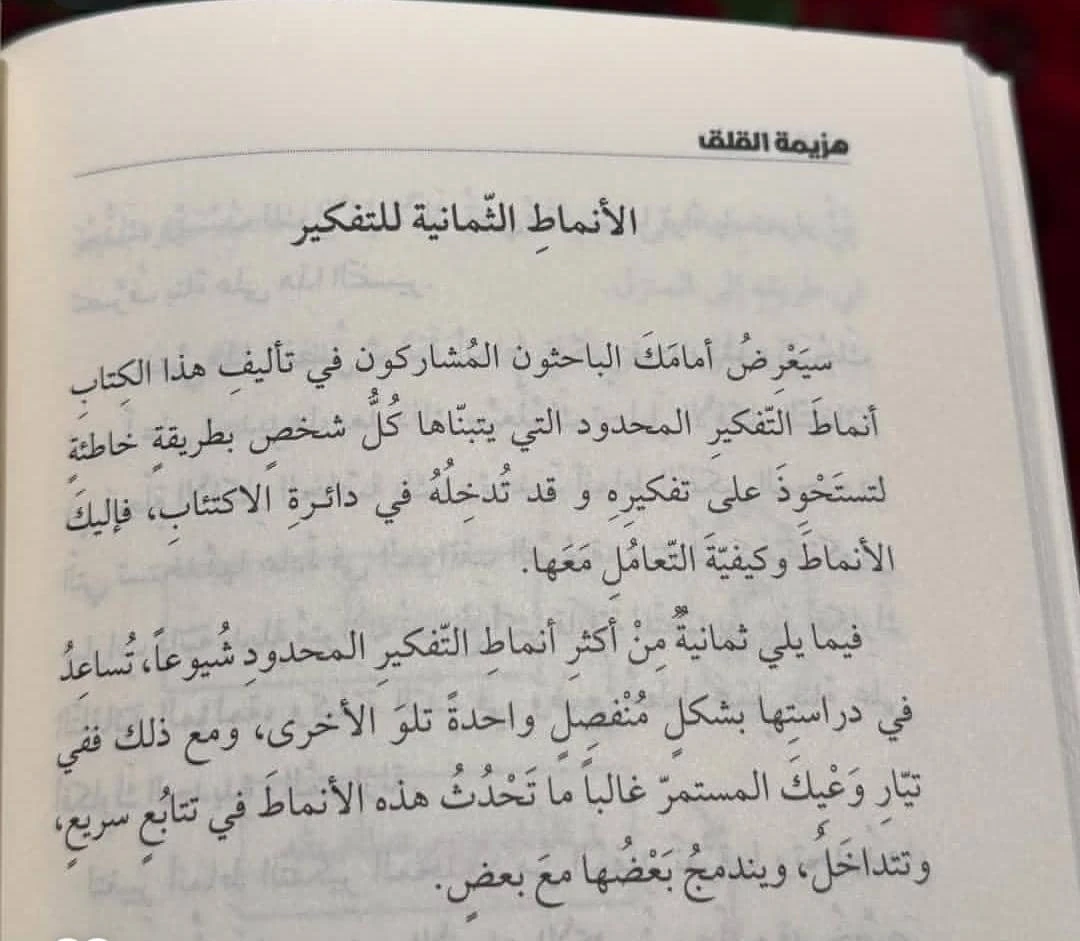 هزيمة القلق
الأنماطِ الثّمانية للتفكير
سيَعْرِضُ أمامَكَ الباحثون المُشاركون في تأليفِ هذا الكِتابِ
أنماطَ التّفكيرِ المحدود التي يتبنّاها كُلُّ شخصٍ بطريقةٍ خاطئةٍ
لتستَحْوِذَ على تفكيرِهِ و قد تُدخِلُهُ في دائرةِ الاكتئابِ، فإليكَ
الأنماطَ وكيفيّةَ التّعامُلِ مَعَها.
فيما يلي ثمانيةٌ مِنْ أكثرِ أنماطِ التّفكيرِ المحدودِ شُيوعاً، تُساعِدُ
في دراستِها بشكلٍ مُنْفصِلٍ واحدةً تلوَ الأخرى، ومع ذلك ففي
تيّارِ وَعْيِكَ المستمرّ غالباً ما تَحْدُثُ هذه الأنماطَ في تتابُعٍ سريعٍ،
وتتداخَلُ، ويندمجُ بَعْضُها معَ بعضٍ.